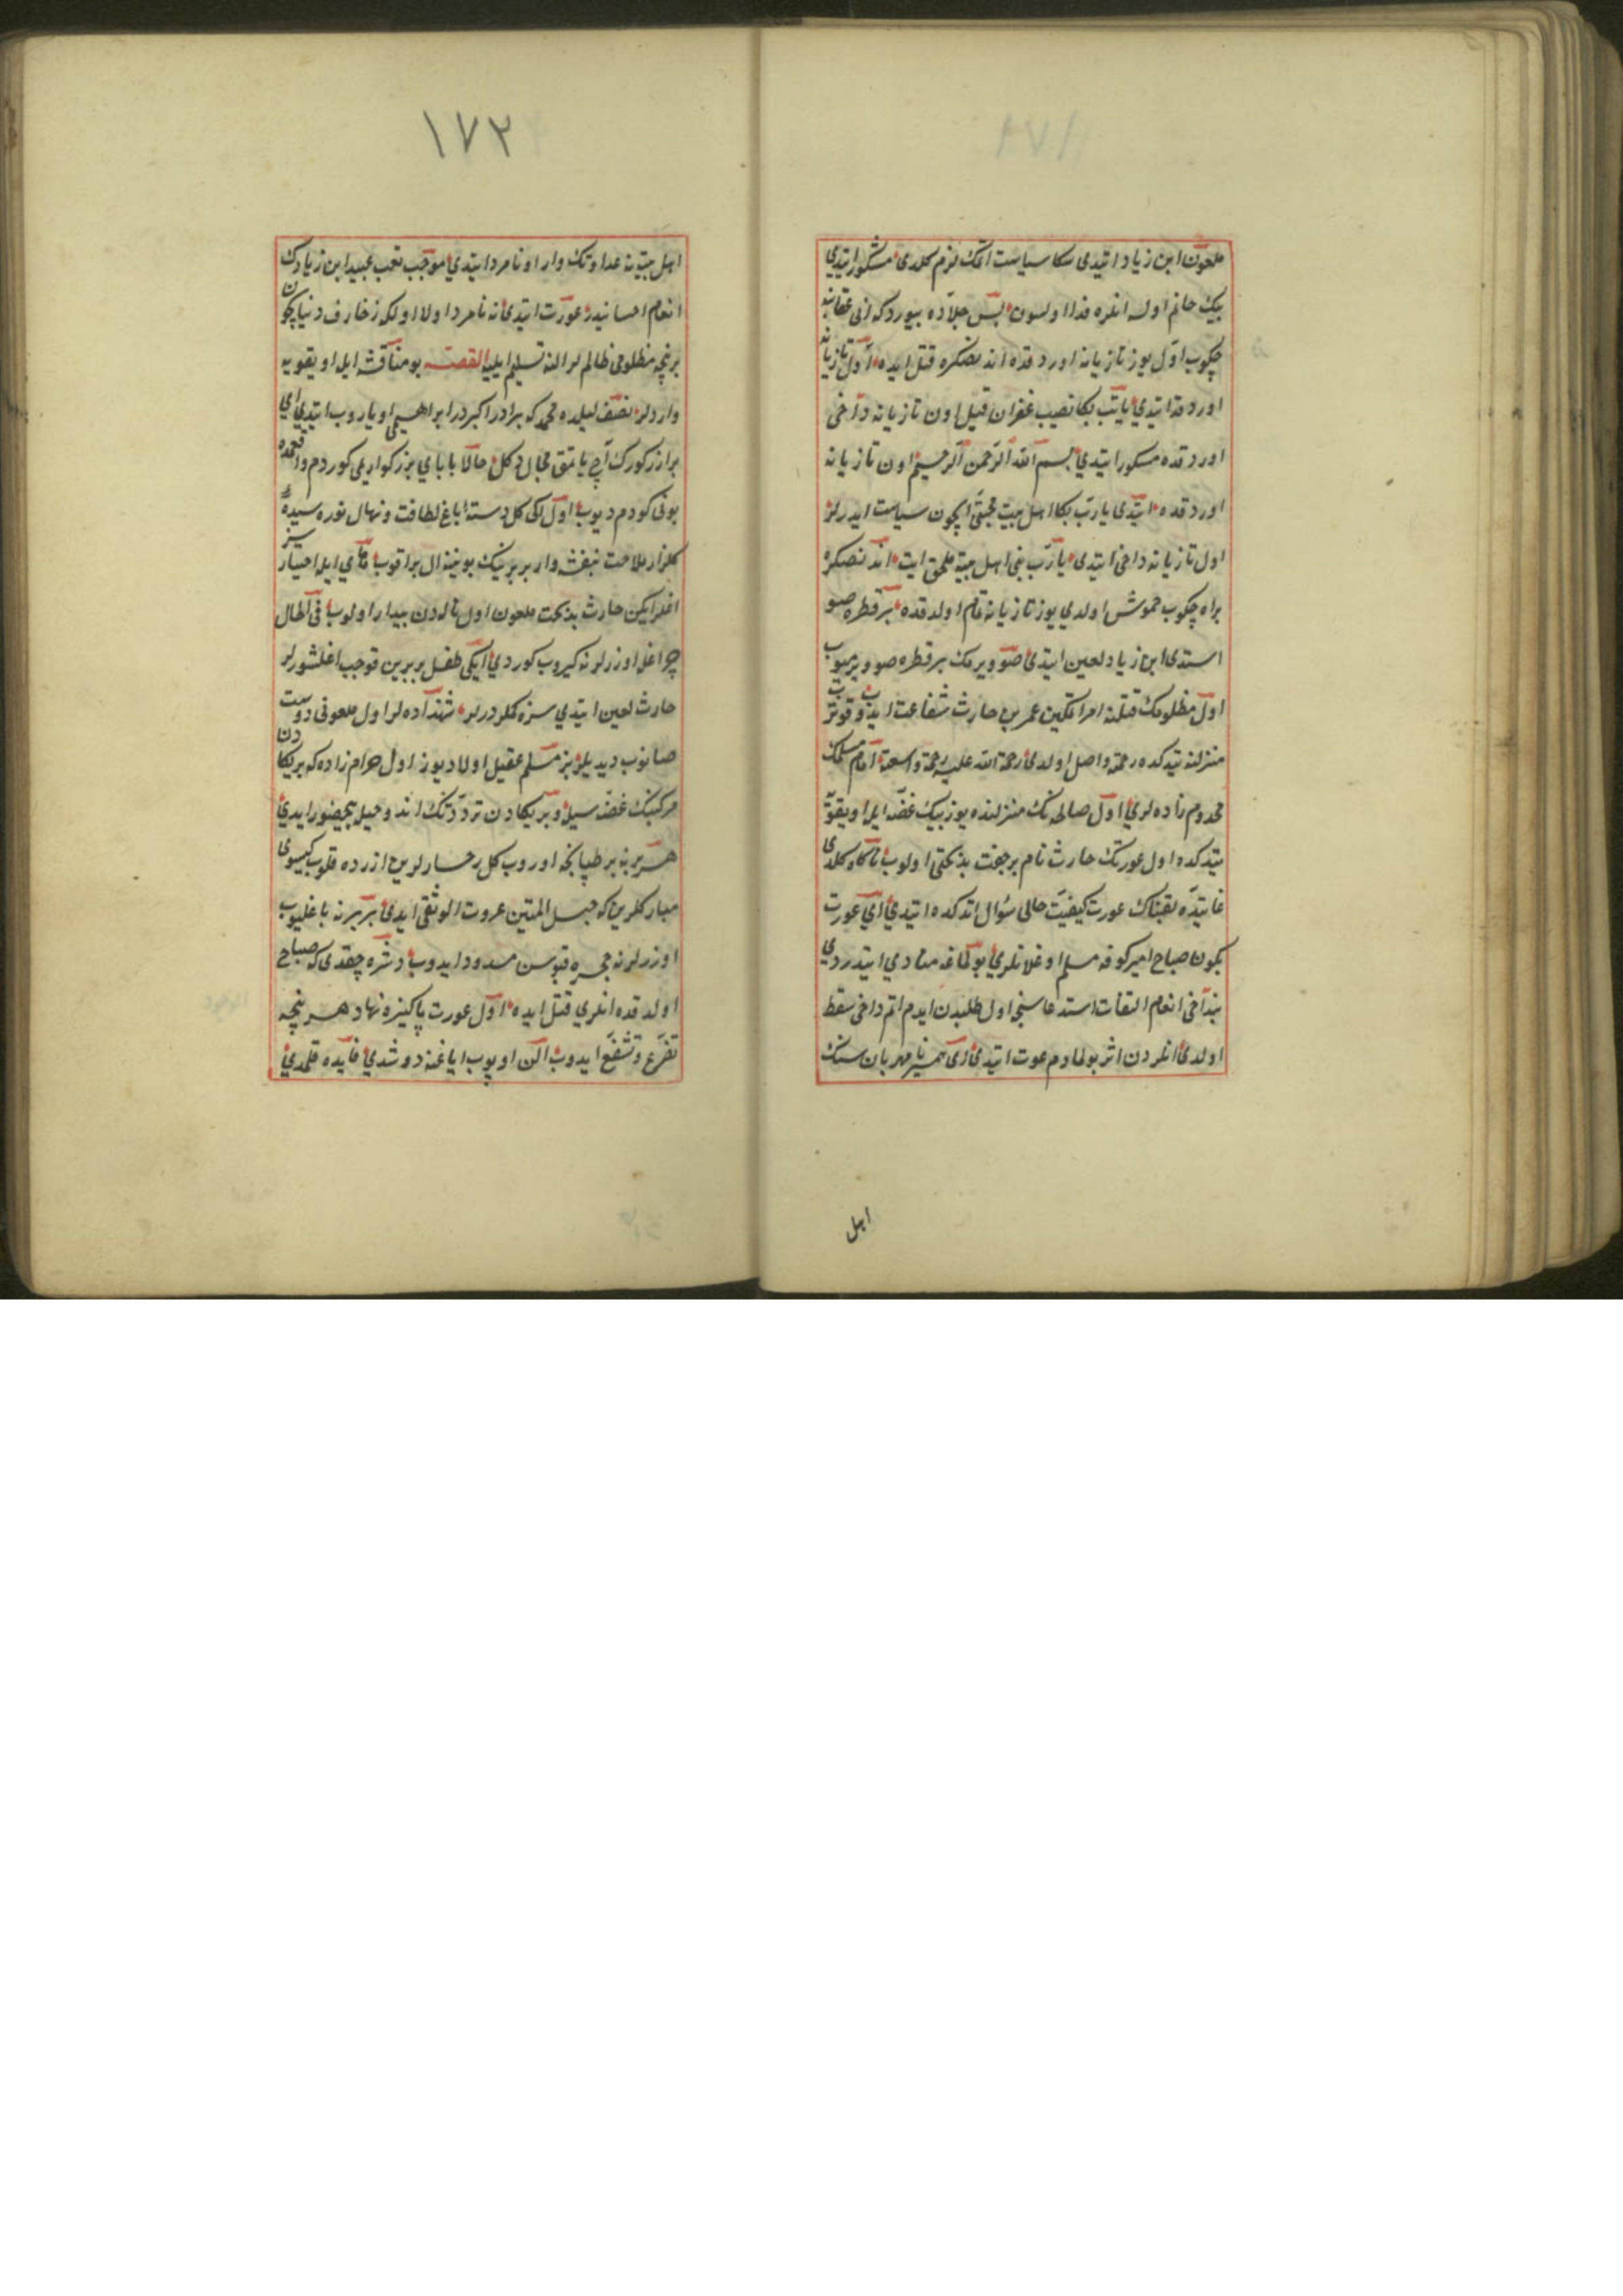 ملعون ابن زیاد ایتدی سکا سیاست اتمک لازم کلدی مشکور ایتدی
بیک جانم اولسه انلره فدا اولسون پس جلاده بیوردکه انی عقابینه
چکوب اول یوز تازیانه اوردقده اندنصکره قتل ایده اول تازیانه
اوردقده ایتدی یارب بکا نصیب غفران قیل اون تازیانه داخی
اوردقده مشکور ایتدی بسم الله الرحمن الرحیم اون تازیانه
اوردقده ایتدی یارب بکا اهل بیت محبتی ایچون سیاست ایدرلر
اول تازیانه داخی ایتدی یارب بنی اهل بیته ملحق ایت اندنصکره
براه چکوب خموش اولدی یوز تازیانه تمام اولدقده بر قطره صو
استدی ابن زیاد لعین ایتدی صو ویرمک بر قطره صو ویرمیوب
اول مظلومک قتلنه امر اتمکین عمر بن حارث شفاعت ایدوب قوتروب
منزلنه یتدکده رحمته واصل اولدی رحمة الله علیه رحمة واسعة امام مسلمک
مخدوم زاده لری اول صالحه نک منزلنده یوز بیک غصه ایله اویقویه
یتدکده اول عورتک حارث نام بر جفت بدبختی اولوب ناکاه کلدی
غایتده عورت کیفیت حالی سؤال اتدکده ایتدی ای عورت
بکون صباح امیر کوفه مسلم اوغلانلری بولماغه منادی ایتدردی
بنداخی انعام التفات استدعاسیچی اول طلبدن ایدم اتم داخی سقط
اولدی انلردن اثر بولمادم عورت ایتدی ای نامهربان سنک
اهل
١٧٢
اهل بیته نه عداوتک وار او نامرد ایتدی موجب تعب عبید ابن زیادک
انعام احسانیدر عورت ایتدی نه نامرد اولا اولکه زخارف دنیا ایچون
بر نیچه مظلومی ظالملر النه تسلیم ایلیه القصه بو مناقشه ایله اویقویه
واردلر نصف لیلده محمد که برادر اکبردر ابراهیمی اویاروب ایتدی ای
برادر کورک اچ یاتمق مجال دکل حالا بابای بزرکواریمی کوردم واقعهده
بونی کوردم دیوب اول ایکی کل دسته باغ لطافت و نهال نورسیده
کلزار ملاحت بنفشه وار بربرینک بویننه ال براقوب های ایله اختیارسز
اغلرایکن حارث بدبخت ملعون اول نالهدن بیدار اولوب فی الحال
چراغله اوزرلرنه کیروب کوردی ایکی طفل بربرین قوجب اغلشورلر
حارث لعین ایتدی سزه کملر درلر شهزاده لر اول ملعونی دوست
صانوب دیدیلر بز مسلم عقیل اولادیوز اول حرام زاده که بریکادن
مرکبنک غصه سیله و بریکادن ترددنک اند وحیله بیحضور ایدی
هر برینه بر طپانجه اوروب کل رخسارلرین ازرده قلوب کیسوی
مبارکلرین که حبل المتین عروت الوثقی ایدی بربرینه باغلیوب
اوزرلرنه حجره قپوسن مسدود ایدوب دشره چقدی که صباح
اولدقده انلری قتل ایده اول عورت پاکیزه نهاد هر نیچه
تضرع و تشفع ایدوب الن اوپوب ایاغنه دوشدی فایده قلمدی